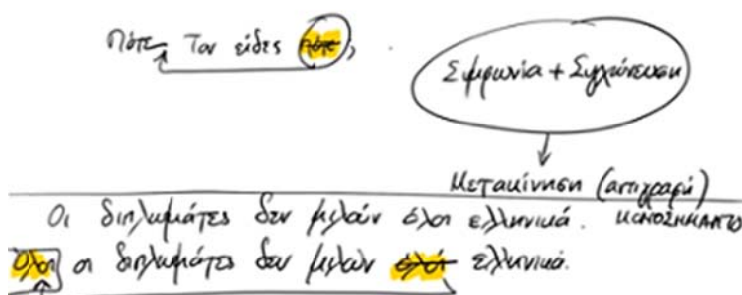 Πότε τον είδες πότε;
Συμφωνία + Συγχώνευση
Μετακίνηση (αντιγραφή)
Οι διπλωμάτες δεν μιλούν όλοι ελληνικά.
Όλοι οι διπλωμάτες δεν μιλούν όλοι ελληνικά.